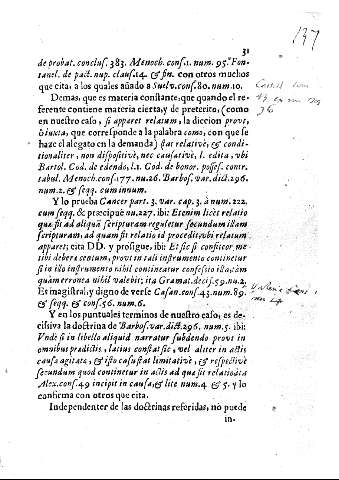 137
31
de probat. conclus. 383. Menoch. cons. 1. num. 95. Fon-
tanel. de pact. nup. claus. 14. & fin. con otros muchos
que cita, a los quales añado a Suelv. cons. 80. num. 10.
Demas, que es materia constante, que quando el re-
ferente contiene materia cierta, y de preterito, (como
en nuestro caso, si apparet relatum, la diccion prout,
ò iuxta, que corresponde a la palabra como, con que se
haze el alegato en la demanda) stat relativè, & condi-
tionaliter, non dispositivè, nec causativè, l. edita, vbi
Bartol. Cod. de edendo, l. 1. Cod. de bonor. posses. contr.
tabul. Menoch. cons. 177. nu. 26. Barbos. var. dict. 296.
num. 2. & seqq. cum innum.
Y lo prueba Cancer part. 3. var. cap. 3. à num. 222.
cum seqq. & præcipuè nu. 227. ibi: Etenim licèt relatio
quæ fit ad aliquã scripturam reguletur secundum illam
scripturam, ad quam fit relatio id procedit, vbi relatum
apparet; cita DD. y prosigue, ibi: Et sic si confiteor me
tibi debere centum, prout in tali instrumento continetur
si in illo instrumento nihil contineatur confessio illa, tãm
quàm erronea nihil valebit; ita Gramat. deci. 59. nu. 2.
Et magistral, y digno de verse Casan. cons. 43. num. 89.
& seqq. & cons. 56. num. 6.
Y en los puntuales terminos de nuestro caso, es de-
cisiva la doctrina de Barbos. var. dict. 296. num. 5. ibi:
Vnde si in libello aliquid narratur subdendo prout in
omnibus prædictis, latius constat sic, vel aliter in actis
causa agitata, & isto casu stat limitativè, & respectivè
secundum quod continetur in actis ad quæ fit relatio ita
Alex. cons. 49 incipit in causa, & lite num. 4 & 5. y lo
confirma con otros que cita.
Independenter de las doctrinas referidas, no puede
in-